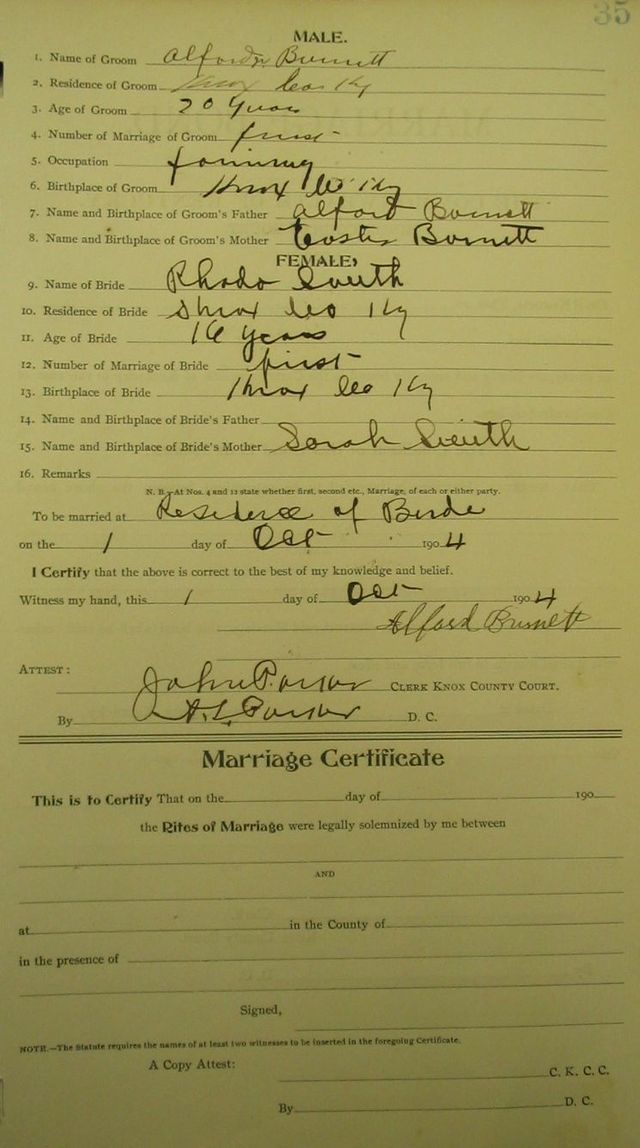 35
MALE.
1. Name of Groom Alford Burnett
2. Residence of Groom Knox Co Ky
3. Age of Groom 20 years
4. Number of Marriage of Groom first
5. Occupation farming
6. Birthplace of Groom Knox Co Ky
7. Name and Birthplace of Groom's Father Alford Burnett
8. Name and Birthplace of Groom's Mother Burnett
FEMALE,
9. Name of Bride Rhoda Smith
10. Residence of Bride Knox Co Ky
11. Age of Bride 16 years
12. Number of Marriage of Bride first
13. Birthplace of Bride Knox Co Ky
14. Name and Birthplace of Bride's Father
15. Name and Birthplace of Bride's Mother Sarah Smith
16. Remarks
N. B.—At Nos. 4 and 12 state whether first, second etc., Marriage, of each or either party.
To be married at Residence of Bride
on the 1 day of Oct 1904
I Certify that the above is correct to the best of my knowledge and belief.
Witness my hand, this 1 day of Oct 1904
Alford Burnett
ATTEST:
John Parker CLERK KNOX COUNTY COURT.
By Parker D. C.
Marriage Certificate
This is to Certify That on the day of 190
the Rites of Marriage were legally solemnized by me between
AND
at in the County of
in the presence of
Signed,
NOTE.—The Statute requires the names of at least two witnesses to be inserted in the foregoing Certificate.
A Copy Attest:
C. K. C. C.
By D. C.